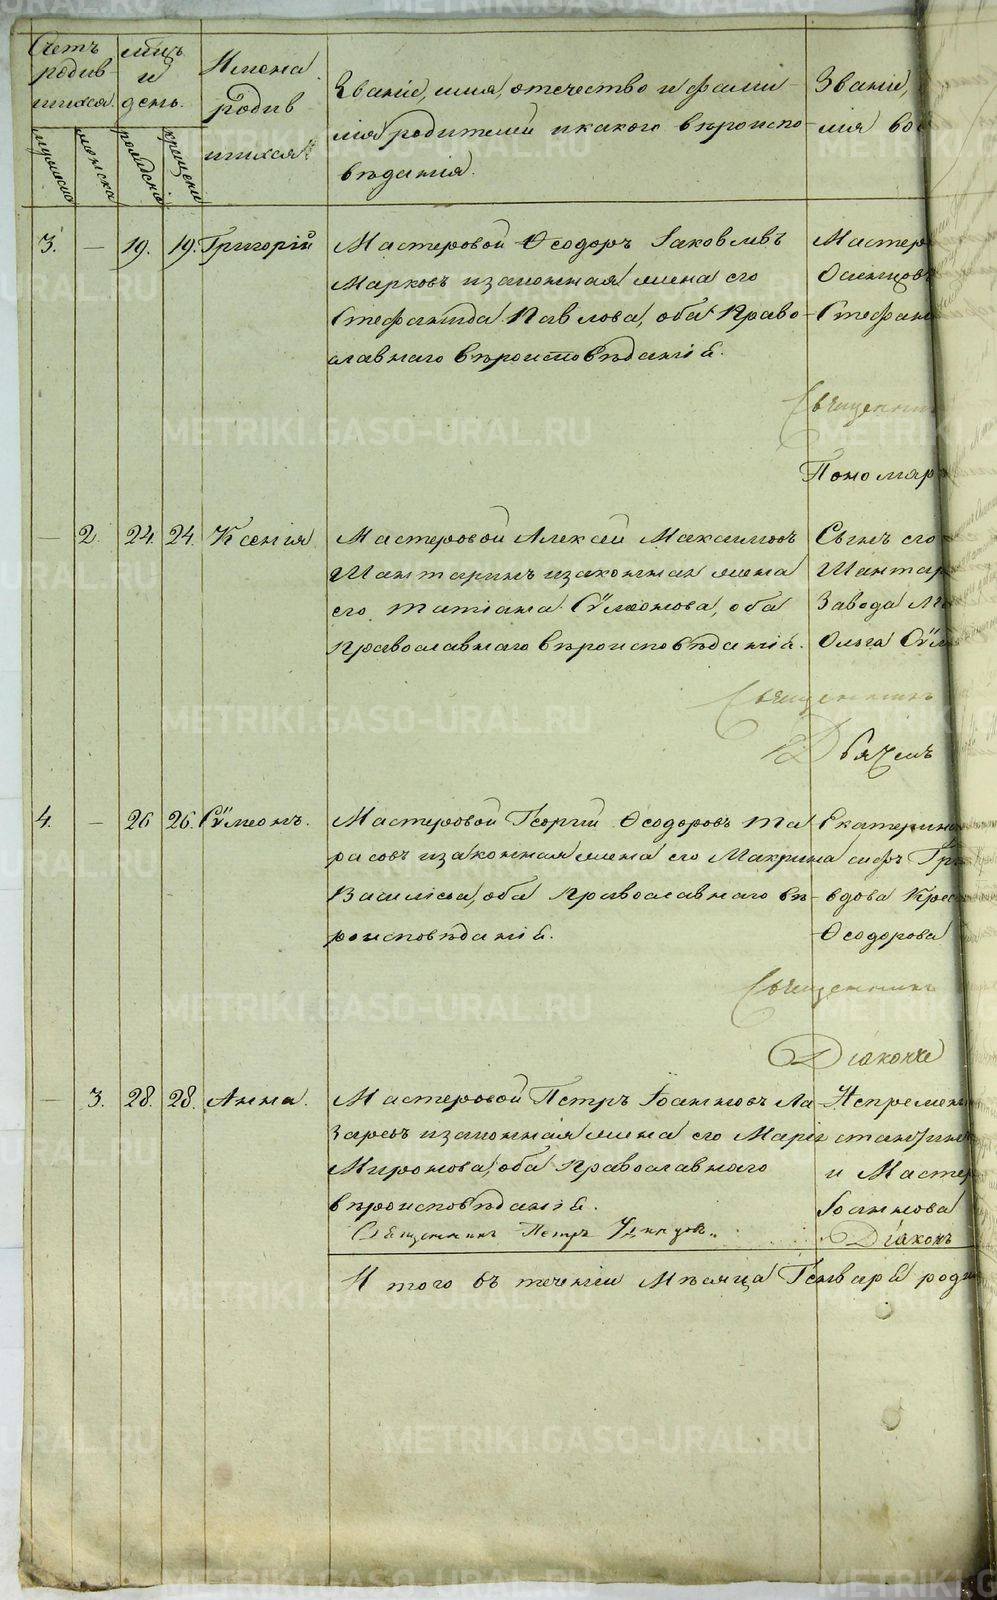 Счетъ родив-шихся.
мужеска
женска
мѣц. и день.
рожденія
крещенія
Имена родив шихся.
Званіе, имя, отечество и фами-
лія родителей и какого вѣроиспо-
вѣданія.
Званіе,
лія во
3. — 19. 19. Григорій
Мастеровой Ѳеодоръ Іаковлевъ
Марковъ и законная жена его
Стефанида Павлова, оба Право-
славнаго вѣроисповѣданія.
Мастер
Стефан
Священни
Пономар
— 2. 24. 24. Ксенія
Мастеровой Алексѣй Максимовъ
Шантаринъ и законная жена
его Татіана Сѵмеонова, оба
Православнаго вѣроисповѣданія.
Сынъ его
Шантар
Завода
Ольга Сѵм
Священникъ
Дьячекъ
4. — 26 26. Сѵмеонъ.
Мастеровой Георгій Ѳеодоровъ Та
расовъ и законная жена его Макрина
Василіева, оба Православнаго вѣ-
роисповѣданія.
Екатерин
вдова Крес
Ѳеодорова
Священникъ
Діаконъ
— 3. 28. 28. Анна.
Мастеровой Петръ Іоанновъ Ла-
заревъ и законная жена его Марія
Миронова, оба Православнаго
вѣроисповѣданія.
Непремен
и Мастер
Іоаннова
Священникъ Петръ
Діаконъ
Итого въ теченіи Мѣсяца Генваря роди
METRIKI.GASO-URAL.RU